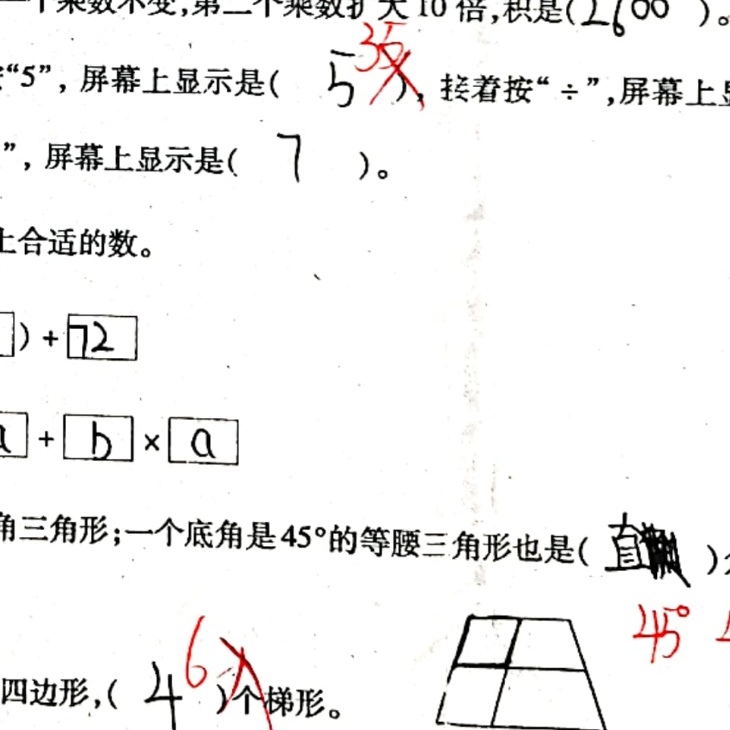 一个乘数不变,第二个乘数扩大10倍,积是(2600)。
“5”,屏幕上显示是( 5 35 ),接着按“÷”,屏幕上显
”,屏幕上显示是( 7 )。
上合适的数。
)+72
a+b×a
角三角形;一个底角是45°的等腰三角形也是(直)
45°
四边形,( 4 6 )个梯形。